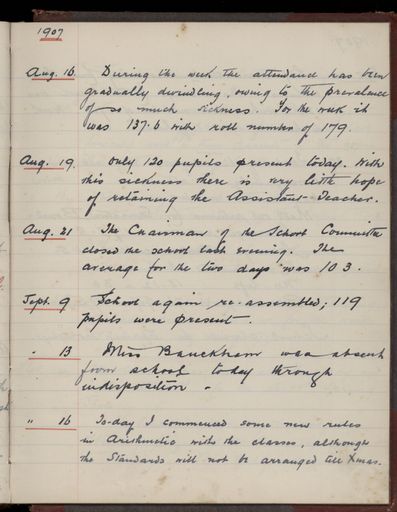 1907
Aug. 16. During the week the attendance has been
gradually dwindling, owing to the prevalence
of so much sickness. For the week it
was 137.6 with roll number of 179.
Aug. 19. Only 120 pupils present today. With
this sickness there is very little hope
of retaining the Assistant-Teacher.
Aug. 21 The Chairman of the School Committee
closed the school last evening. The
average for the two days was 103.
Sept. 9 School again re-assembled; 119
pupils were present.
" 13 Miss Bauckham was absent
from school today through
indisposition.
" 16 To-day I commenced some new rules
in Arithmetic with the classes, although
the Standards will not be arranged till Xmas.